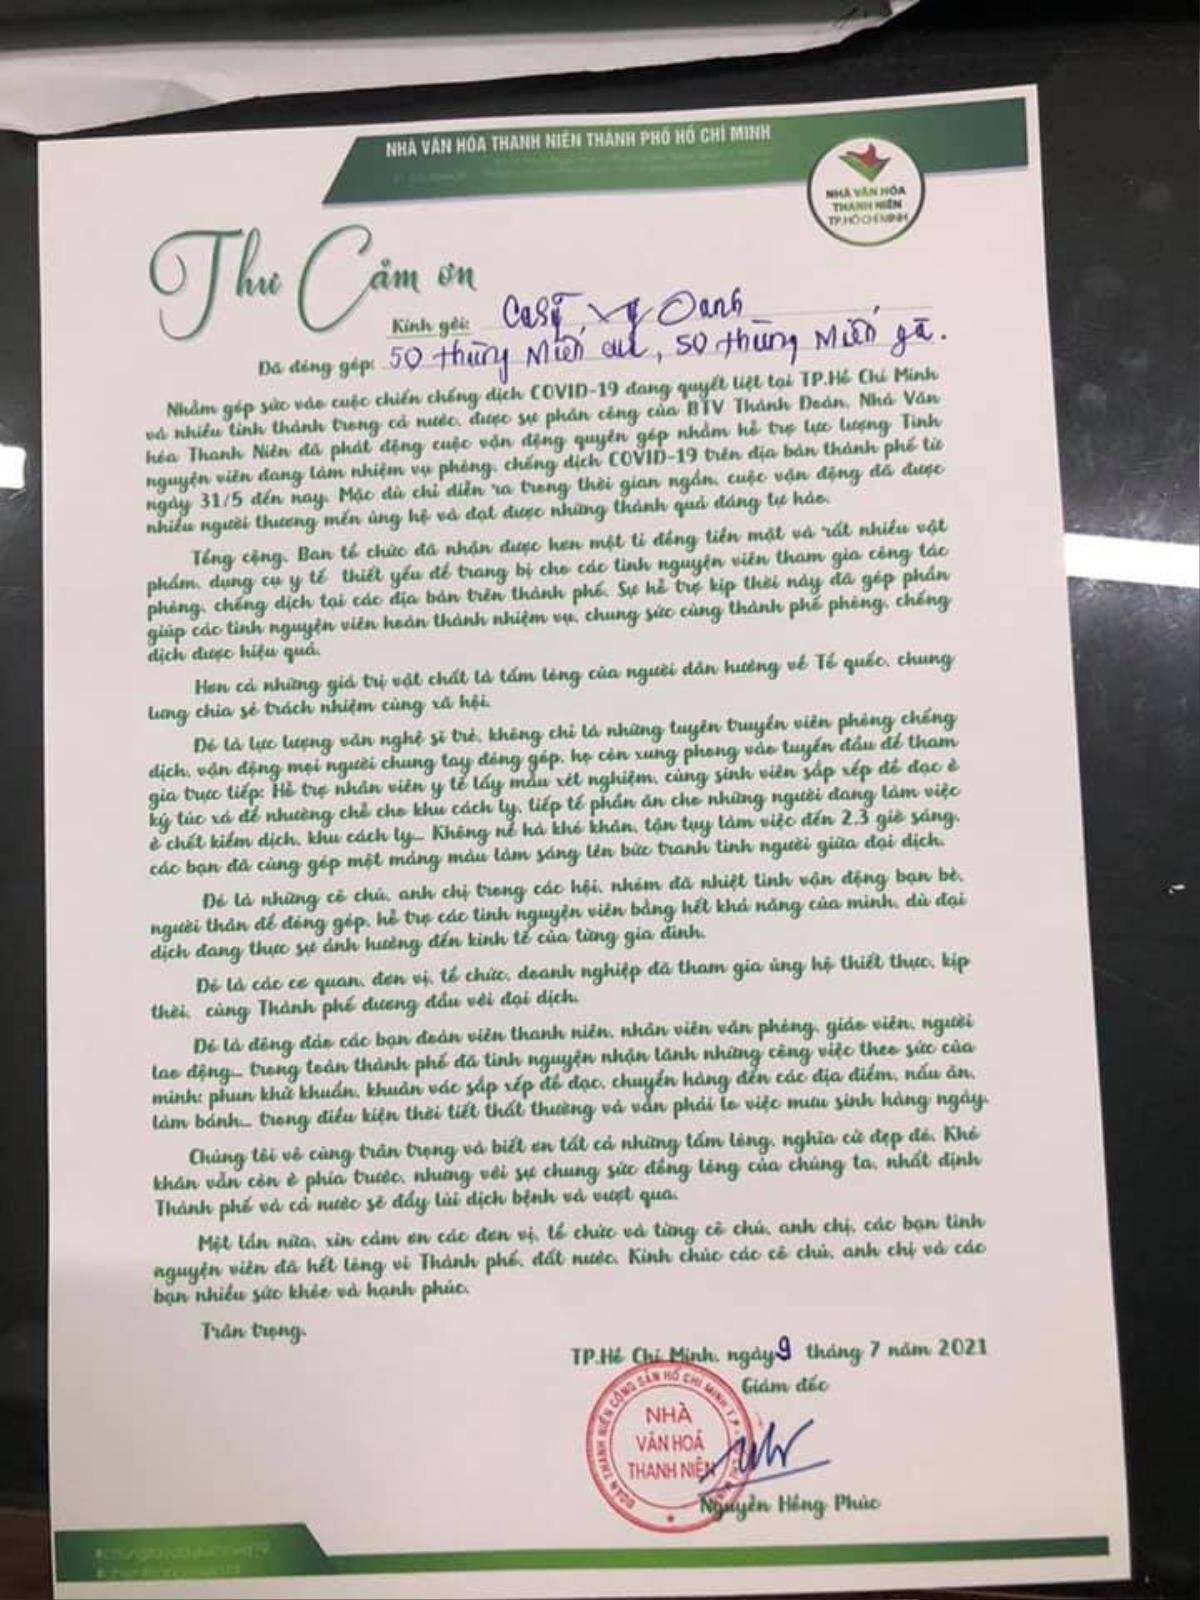 NHÀ VĂN HÓA THANH NIÊN THÀNH PHỐ HỒ CHÍ MINH
NHÀ VĂN HÓA
THANH NIÊN
TP.HỒ CHÍ MINH
Thư Cảm ơn
Kính gởi: Ca sỹ Vy Oanh
Đã đóng góp: 50 thùng Miến cua, 50 thùng Miến gà.
Nhằm góp sức vào cuộc chiến chống dịch COVID-19 đang quyết liệt tại TP.Hồ Chí Minh
và nhiều tỉnh thành trong cả nước, được sự phân công của BTV Thành Đoàn, Nhà Văn
hóa Thanh Niên đã phát động cuộc vận động quyên góp nhằm hỗ trợ lực lượng Tình
nguyện viên đang làm nhiệm vụ phòng, chống dịch COVID-19 trên địa bàn thành phố từ
ngày 31/5 đến nay. Mặc dù chỉ diễn ra trong thời gian ngắn, cuộc vận động đã được
nhiều người thương mến ủng hộ và đạt được những thành quả đáng tự hào.
Tổng cộng, Ban tổ chức đã nhận được hơn một tỉ đồng tiền mặt và rất nhiều vật
phẩm, dụng cụ y tế thiết yếu để trang bị cho các tình nguyện viên tham gia công tác
phòng, chống dịch tại các địa bàn trên thành phố. Sự hỗ trợ kịp thời này đã góp phần
giúp các tình nguyện viên hoàn thành nhiệm vụ, chung sức cùng thành phố phòng, chống
dịch được hiệu quả.
Hơn cả những giá trị vật chất là tấm lòng của người dân hướng về Tổ quốc, chung
lưng chia sẻ trách nhiệm cùng xã hội.
Đó là lực lượng văn nghệ sĩ trẻ, không chỉ là những tuyên truyền viên phòng chống
dịch, vận động mọi người chung tay đóng góp, họ còn xung phong vào tuyến đầu để tham
gia trực tiếp: Hỗ trợ nhân viên y tế lấy mẫu xét nghiệm, cùng sinh viên sắp xếp đồ đạc ở
ký túc xá để nhường chỗ cho khu cách ly, tiếp tế phần ăn cho những người đang làm việc
ở chốt kiểm dịch, khu cách ly... Không nề hà khó khăn, tận tụy làm việc đến 2,3 giờ sáng,
các bạn đã cùng góp một mảng màu làm sáng lên bức tranh tình người giữa đại dịch.
Đó là những cô chú, anh chị trong các hội, nhóm đã nhiệt tình vận động bạn bè,
người thân để đóng góp, hỗ trợ các tình nguyện viên bằng hết khả năng của mình, dù đại
dịch đang thực sự ảnh hưởng đến kinh tế của từng gia đình.
Đó là các cơ quan, đơn vị, tổ chức, doanh nghiệp đã tham gia ủng hộ thiết thực, kịp
thời, cùng Thành phố đương đầu với đại dịch.
Đó là đông đảo các bạn đoàn viên thanh niên, nhân viên văn phòng, giáo viên, người
lao động... trong toàn thành phố đã tình nguyện nhận lãnh những công việc theo sức của
mình: phun khử khuẩn, khuân vác sắp xếp đồ đạc, chuyển hàng đến các địa điểm, nấu ăn,
làm bánh... trong điều kiện thời tiết thất thường và vẫn phải lo việc mưu sinh hàng ngày.
Chúng tôi vô cùng trân trọng và biết ơn tất cả những tấm lòng, nghĩa cử đẹp đó. Khó
khăn vẫn còn ở phía trước, nhưng với sự chung sức đồng lòng của chúng ta, nhất định
Thành phố và cả nước sẽ đẩy lùi dịch bệnh và vượt qua.
Một lần nữa, xin cảm ơn các đơn vị, tổ chức và từng cô chú, anh chị, các bạn tình
nguyện viên đã hết lòng vì Thành phố, đất nước. Kính chúc các cô chú, anh chị và các
bạn nhiều sức khỏe và hạnh phúc.
Trân trọng.
TP.Hồ Chí Minh, ngày 9 tháng 7 năm 2021
Giám đốc
ĐOÀN THANH NIÊN CỘNG SẢN HỒ CHÍ MINH T.P
NHÀ
VĂN HOÁ
THANH NIÊN
Nguyễn Hồng Phúc